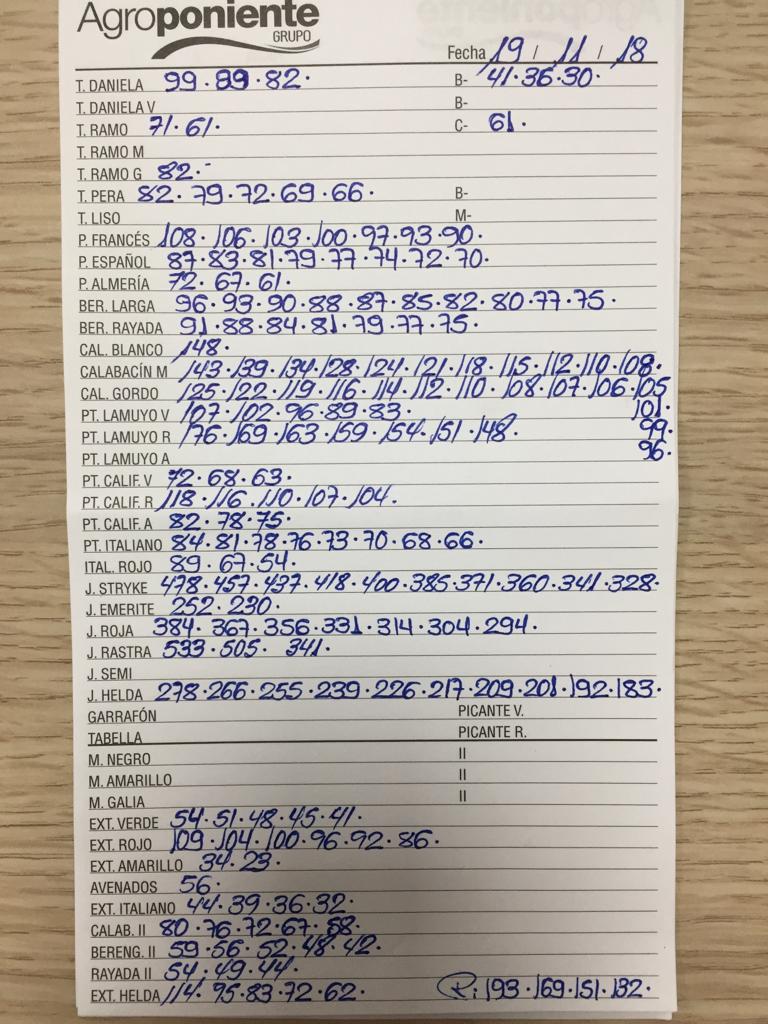 Agroponiente
GRUPO
Fecha 19 / 11 / 18
T. DANIELA 99.89.82. B- 41.36.30.
T. DANIELA V B-
T. RAMO 71.61. C- 61.
T. RAMO M
T. RAMO G 82.-
T. PERA 82.79.72.69.66. B-
T. LISO M-
P. FRANCÉS 108.106.103.100.97.93.90.
P. ESPAÑOL 87.83.81.79.77.74.72.70.
P. ALMERÍA 72.67.61.
BER. LARGA 96.93.90.88.87.85.82.80.77.75.
BER. RAYADA 91.88.84.81.79.77.75.
CAL. BLANCO 148.
CALABACÍN M 143.139.134.128.124.121.118.115.112.110.108.
CAL. GORDO 125.122.119.116.114.112.110.108.107.106.105
PT. LAMUYO V 107.102.96.89.83. 101.
PT. LAMUYO R 176.169.163.159.154.151.148. 99.
PT. LAMUYO A 96.
PT. CALIF. V 72.68.63.
PT. CALIF. R 118.116.110.107.104.
PT. CALIF. A 82.78.75.
PT. ITALIANO 84.81.78.76.73.70.68.66.
ITAL. ROJO 89.67.54.
J. STRYKE 478.457.437.418.400.385.371.360.341.328.
J. EMERITE 252.230.
J. ROJA 384.367.356.331.314.304.294.
J. RASTRA 533.505. 341.
J. SEMI
J. HELDA 278.266.255.239.226.217.209.201.192.183.
GARRAFÓN PICANTE V.
TABELLA PICANTE R.
M. NEGRO II
M. AMARILLO II
M. GALIA II
EXT. VERDE 54.51.48.45.41.
EXT. ROJO 109.104.100.96.92.86.
EXT. AMARILLO 34.23.
AVENADOS 56.
EXT. ITALIANO 44.39.36.32.
CALAB. II 80.76.72.67.58.
BERENG. II 59.56.52.48.42.
RAYADA II 54.49.44.
EXT. HELDA 114.95.83.72.62. R: 193.169.151.132.